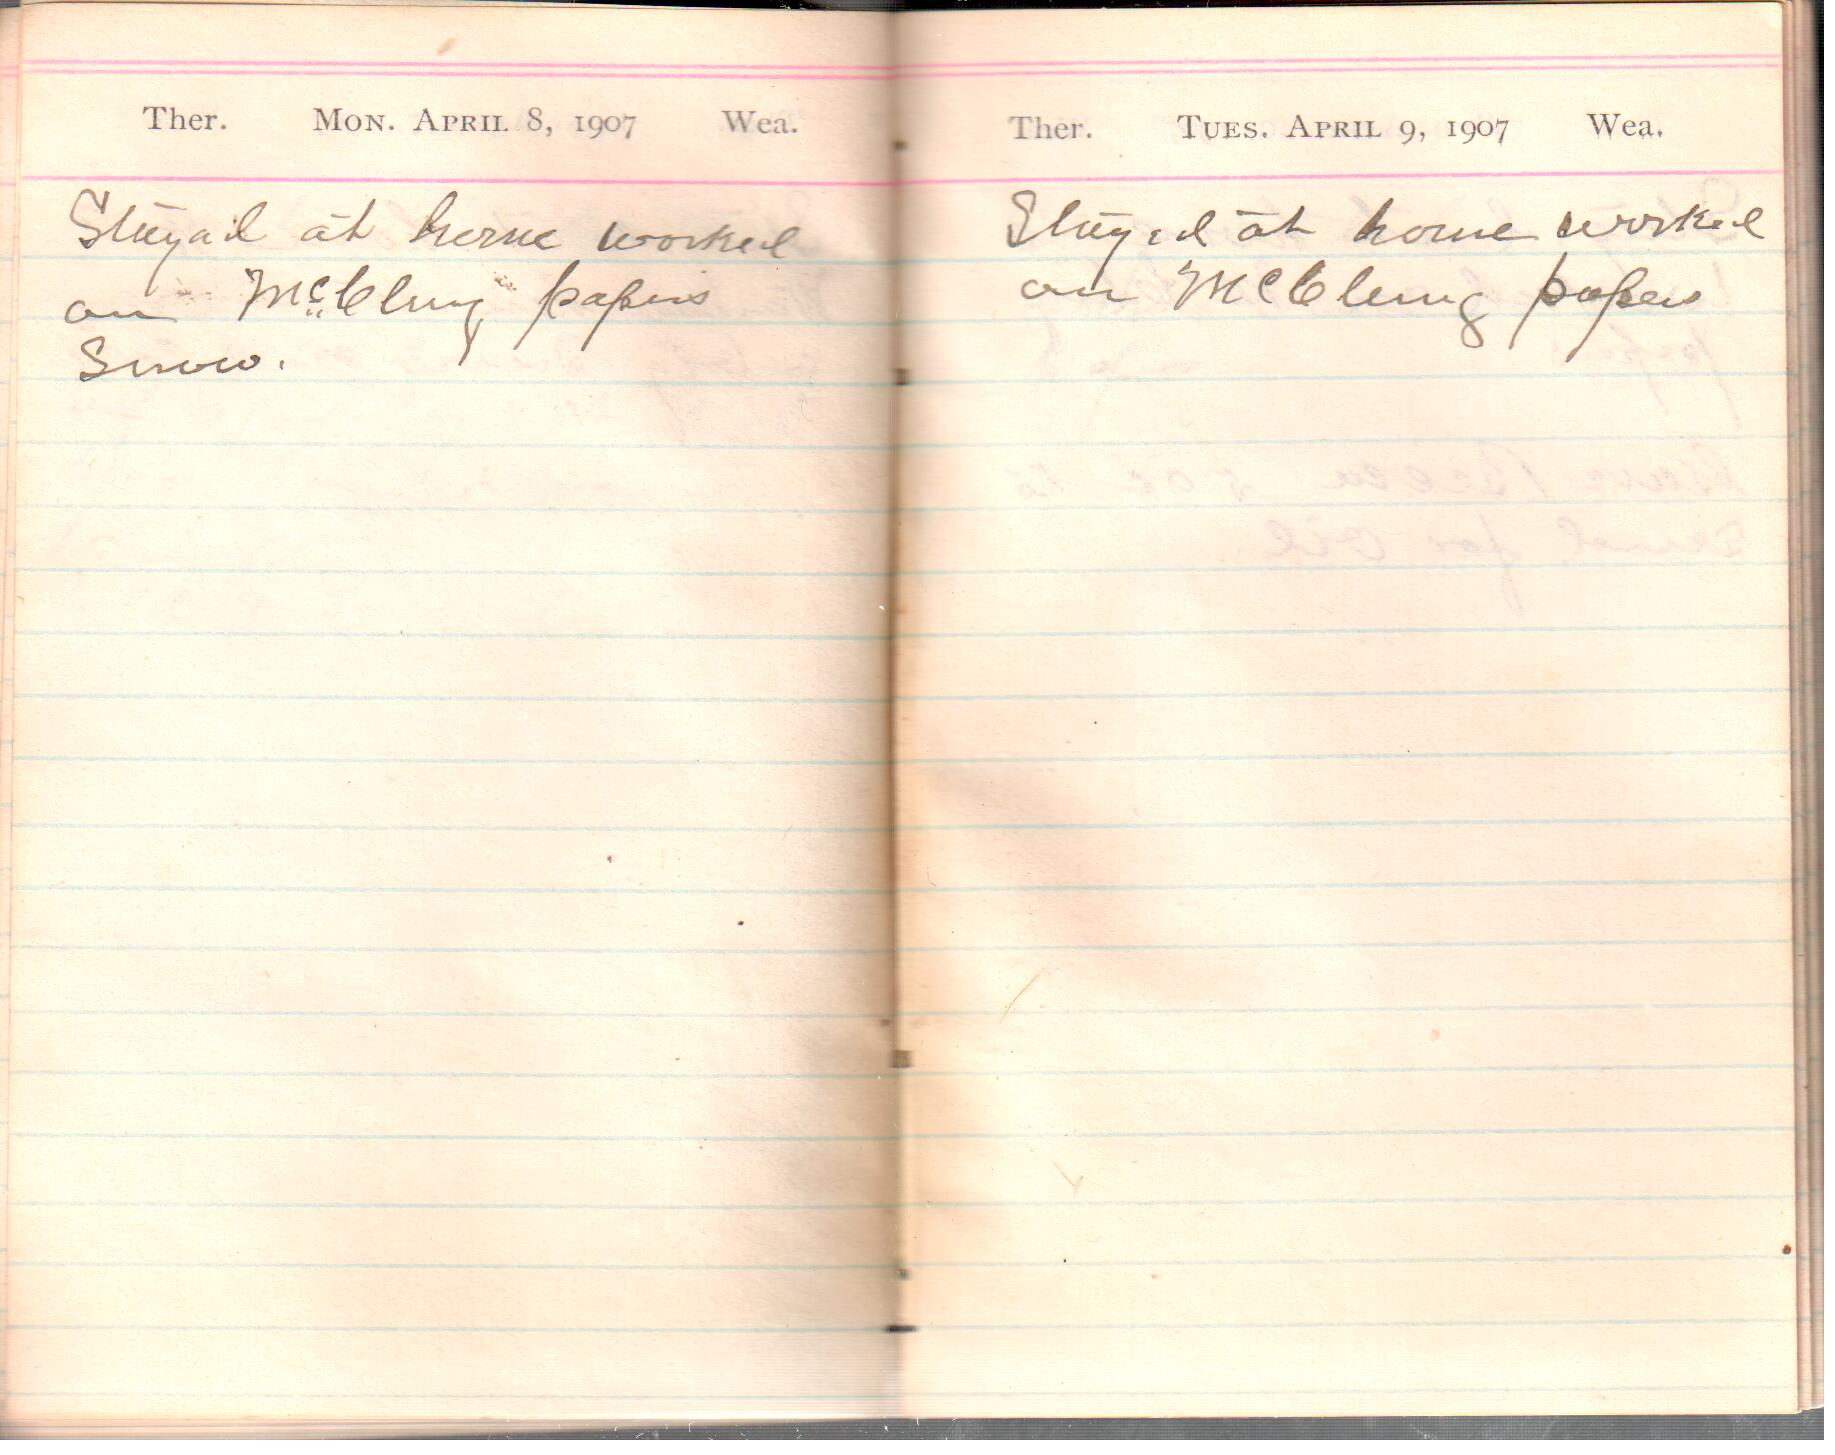 Ther. Mon. April 8, 1907 Wea.
Stayed at home worked
on McClung papers
Snow.
Ther. Tues. April 9, 1907 Wea.
Stayed at home worked
on McClung papers